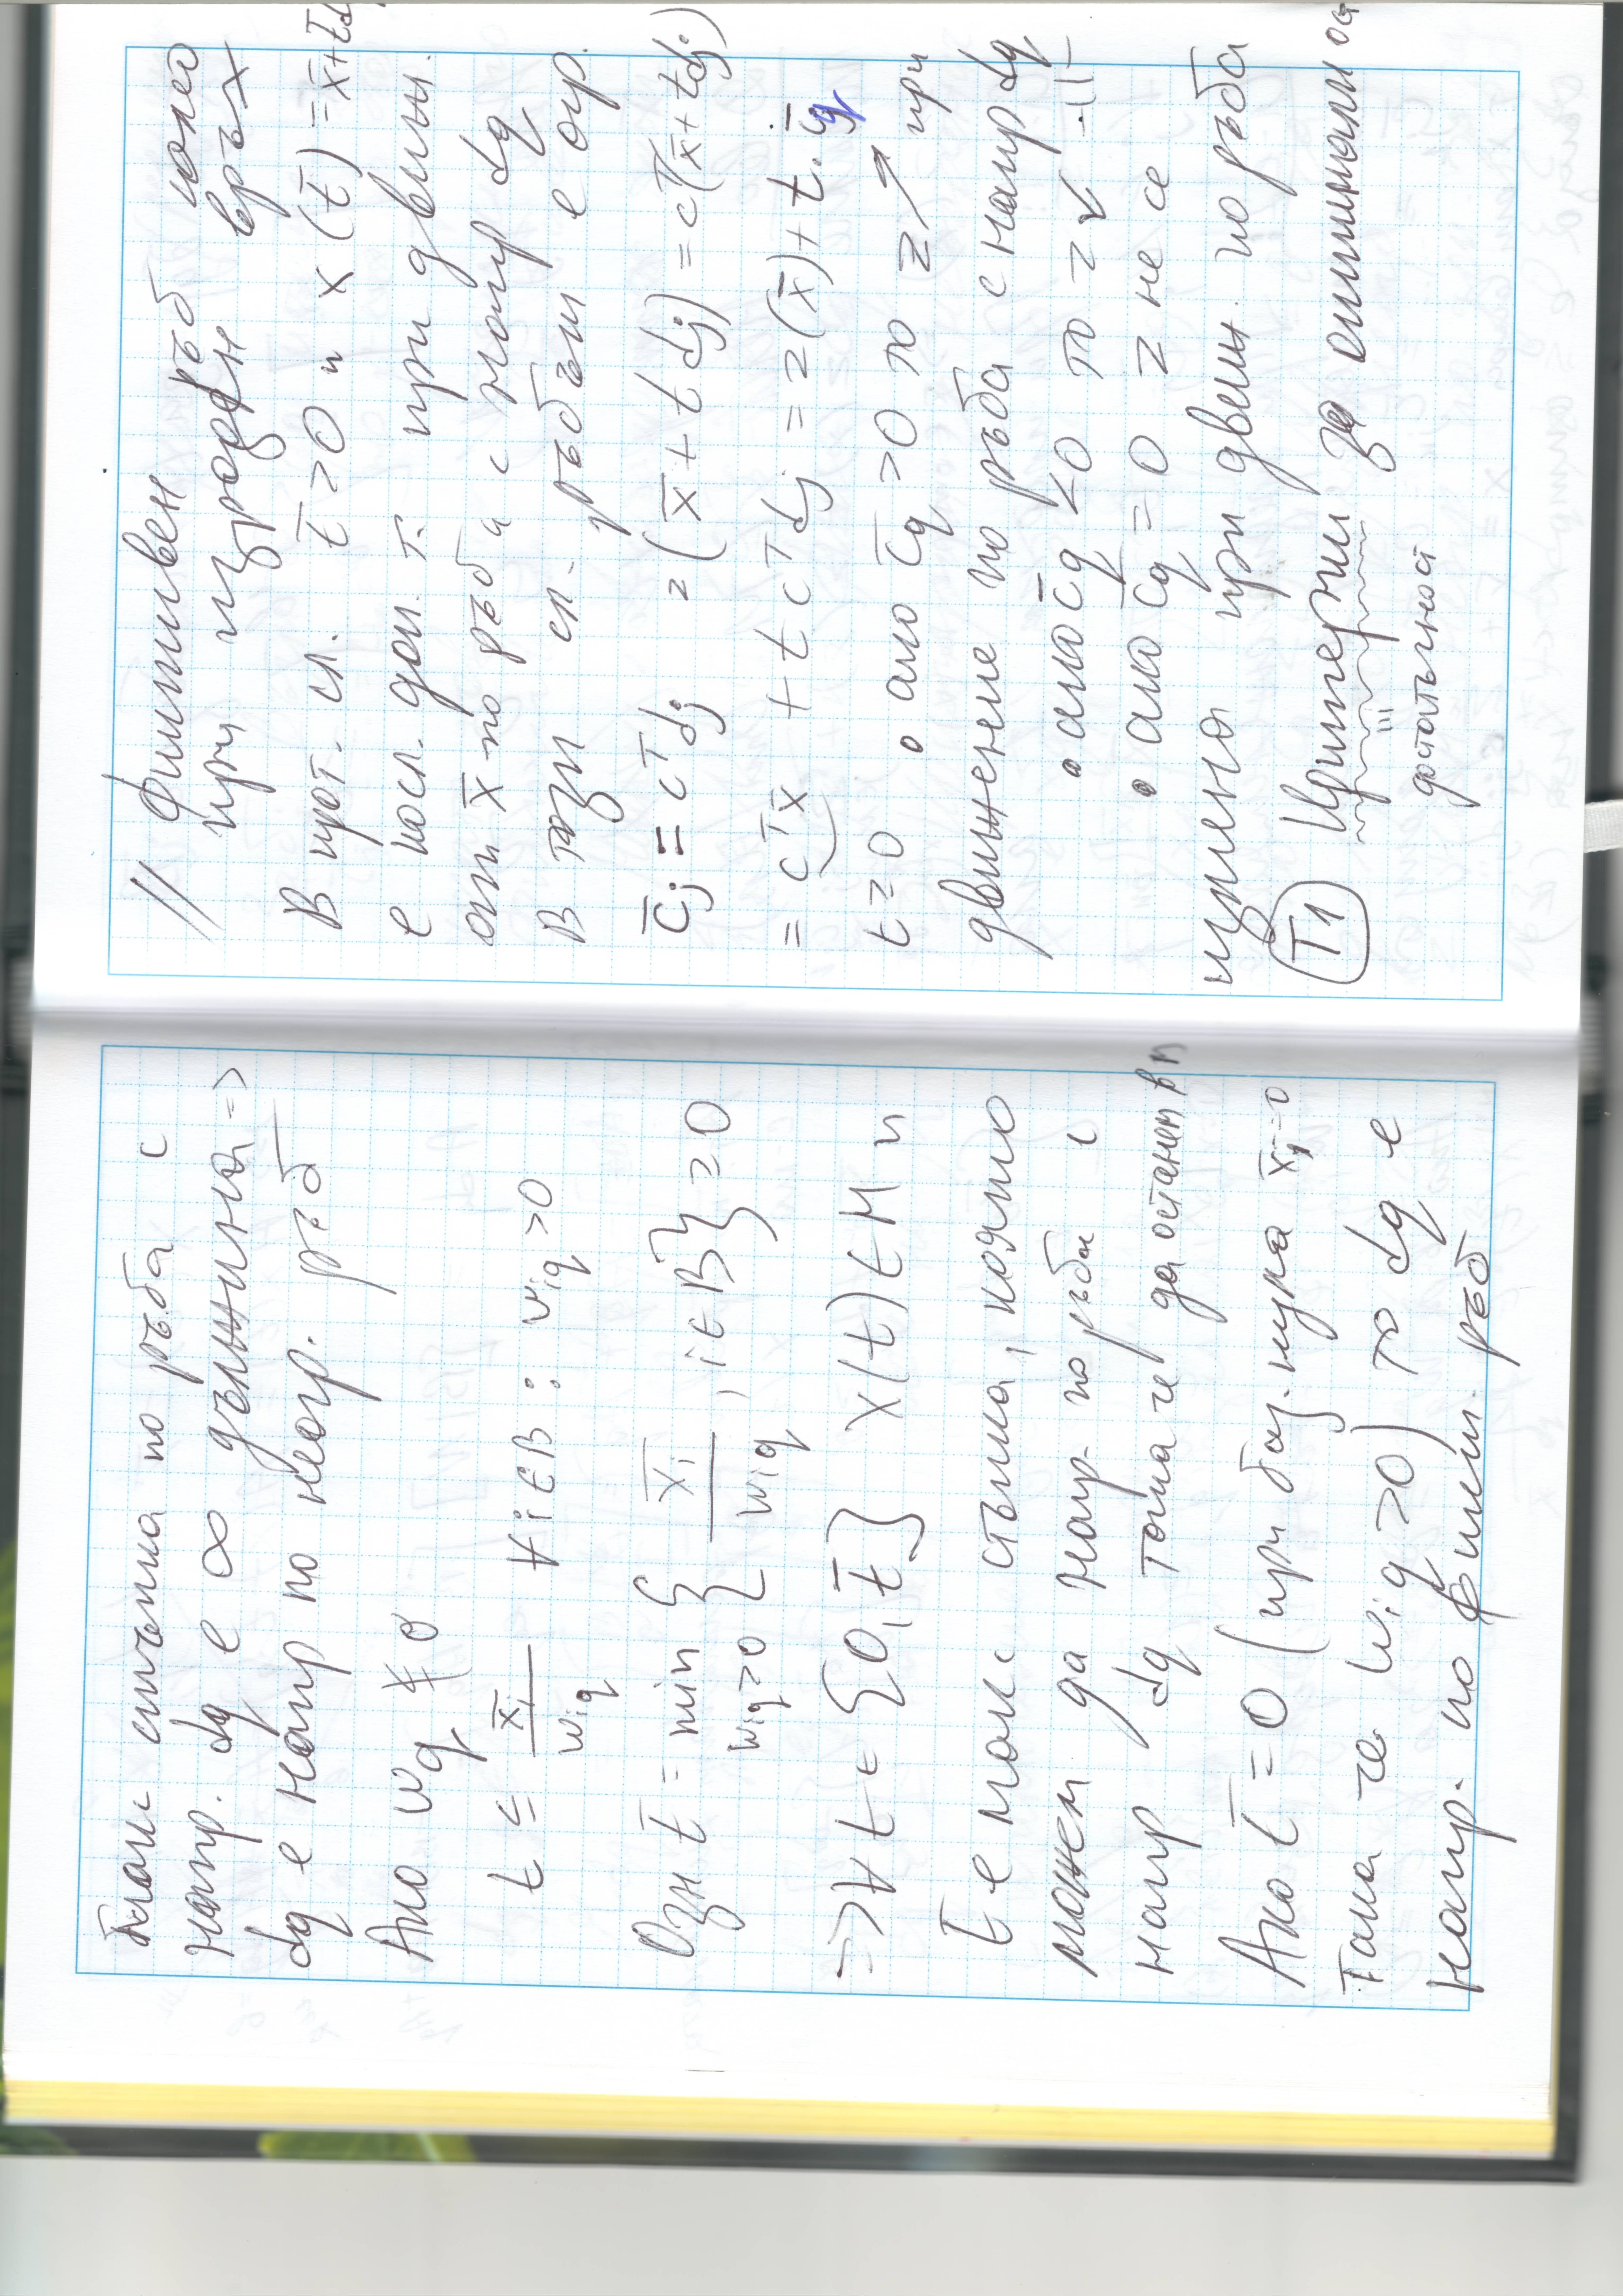 макс стъпка по ръба с
напр. dq е ∞ дължина =>
dq е напр по неогр. ръб
Ако wq ≰ 0
t ≤ x̄i / wiq ∀ i ∈ B : wiq > 0
Озн t̄ = min wiq>0 { x̄i / wiq , i ∈ B } ≥ 0
=> ∀ t ∈ [0, t̄] x(t) ∈ M и
t̄ е макс стъпка, която
можем да напр. по ръба с
напр dq така че да останем в М
Ако t̄ = 0 (при баз. нула x̄i = 0
така че wiq > 0) то dq е
напр. по фикт. ръб
// Фиктивен ръб
при изроден връх
В прот. сл. t̄ > 0 и x(t̄) = x̄ + t̄dq
е посл. доп. т. при движ.
от x̄ по ръба с напр dq
В този сл. ръбът е огр.
c̄j = cᵀdj z(x̄ + t dj) = cᵀ(x̄ + tdj)
= cᵀx̄ + t cᵀdj = z(x̄) + t. c̄q
t ≥ 0 • ако c̄q > 0 то z ↗ при
движение по ръба с напр dq
• ако c̄q < 0 то z ↙ -||-
• ако c̄q = 0 z не се
изменя при движ. по ръба
T1 Критерий за оптималност
достатъчной